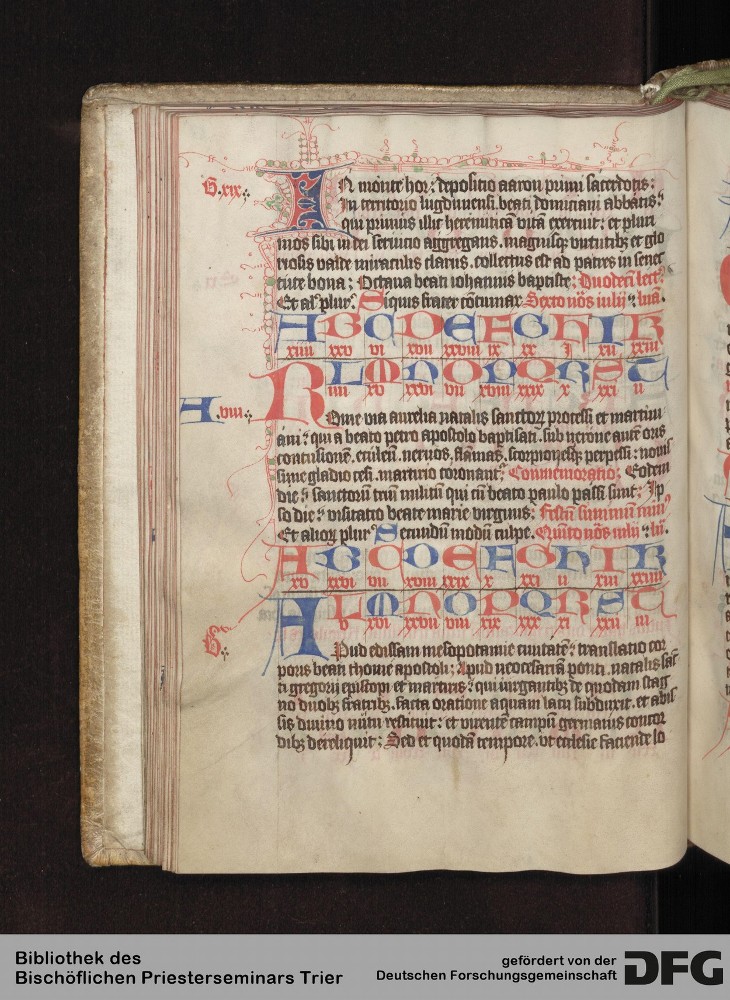 G. xix.
In monte hor: depositio aaron primi sacerdotis:
In territorio lugdunensi. beati domiciani abbatis:
qui primus illic heremiticā vitā exercuit: et pluri
mos sibi in dei seruicio aggregans. magnisqȝ virtutibȝ et glo
riosis valde miraculis clarus. collectus est ad patres in senec
tute bona: Octaua beati iohannis baptiste: Quodcū lect̄.
Et al' plur'. Siquis frater cōtumax Sexto nōs iulij : luā.
A B C D E F G H I K
xiiii xxv vi xvii xxviii ix xx I xii xxiii
L M N O P Q R S T
iiii xv xxvi vii xviii xxix x xxi ii
A. viii.
Rome via aurelia natalis sanctoꝝ processi et martini
ani: qui a beato petro apostolo baptisati. sub nerone
contusionē. eculeū. neruos. flāmas. scorpionesqȝ perpessi: nouis
sime gladio cesi. martirio coronant': Conmemoratio: Eodem
die: sanctorū triū militū qui cū beato paulo passi sunt: Ip
so die: visitatio beate marie virginis: Festū summum
Et alioꝝ plur' Secundū modū culpe. Quīto nōs iulij :
A B C D E F G H I K
xv xxvi vii xviii xxix x xxi ii xiii xxiiii
L M N O P Q R S T
v xvi xxvii viii xix xxx xi xxii iii
B
Apud edissam mesopotamie ciuitatē: translatio cor
poris beati thome apostoli: Apud neocesariā ponti. natalis sāc
ti gregorij episcopi et martiris: qui iurgantibȝ de quodam stag
no duobȝ fratribȝ. facta oratione aquam laci subduxit. et abis
sis diuino nutu restituit: et virentē campū germanis concor
dibȝ dereliquit: Sed et quodā tempore. vt ecclesie faciende lo
Bibliothek des
Bischöflichen Priesterseminars Trier
gefördert von der
Deutschen Forschungsgemeinschaft DFG